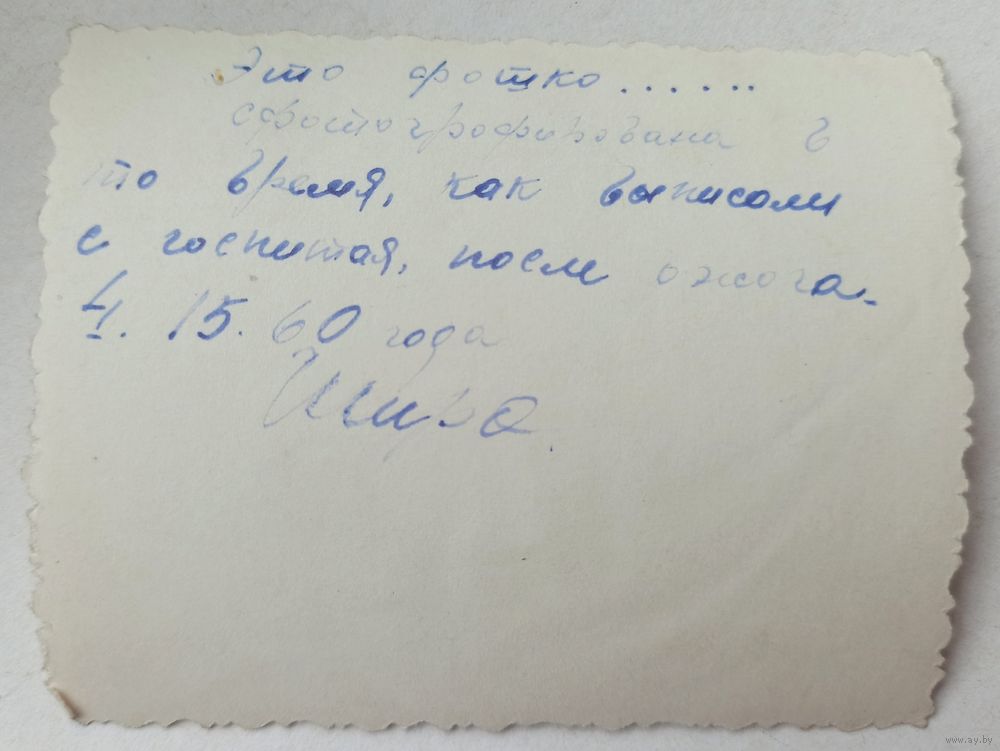 Это фотко......
сфотографирована в
то время, как выписали
с госпиталя, после ожога.
15.60 года
www.ay.by